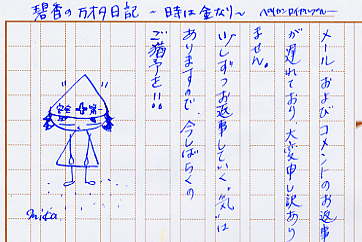 碧香の万オタ日記 ～時は金なり～
ペリカンロイヤルブルー
メールおよびコメントのお返事
が遅れており、大変申し訳あり
ません。
少しずつお返事していく。"気"は
ありますので、今しばらくの
ご猶予を!!
安全＋第一